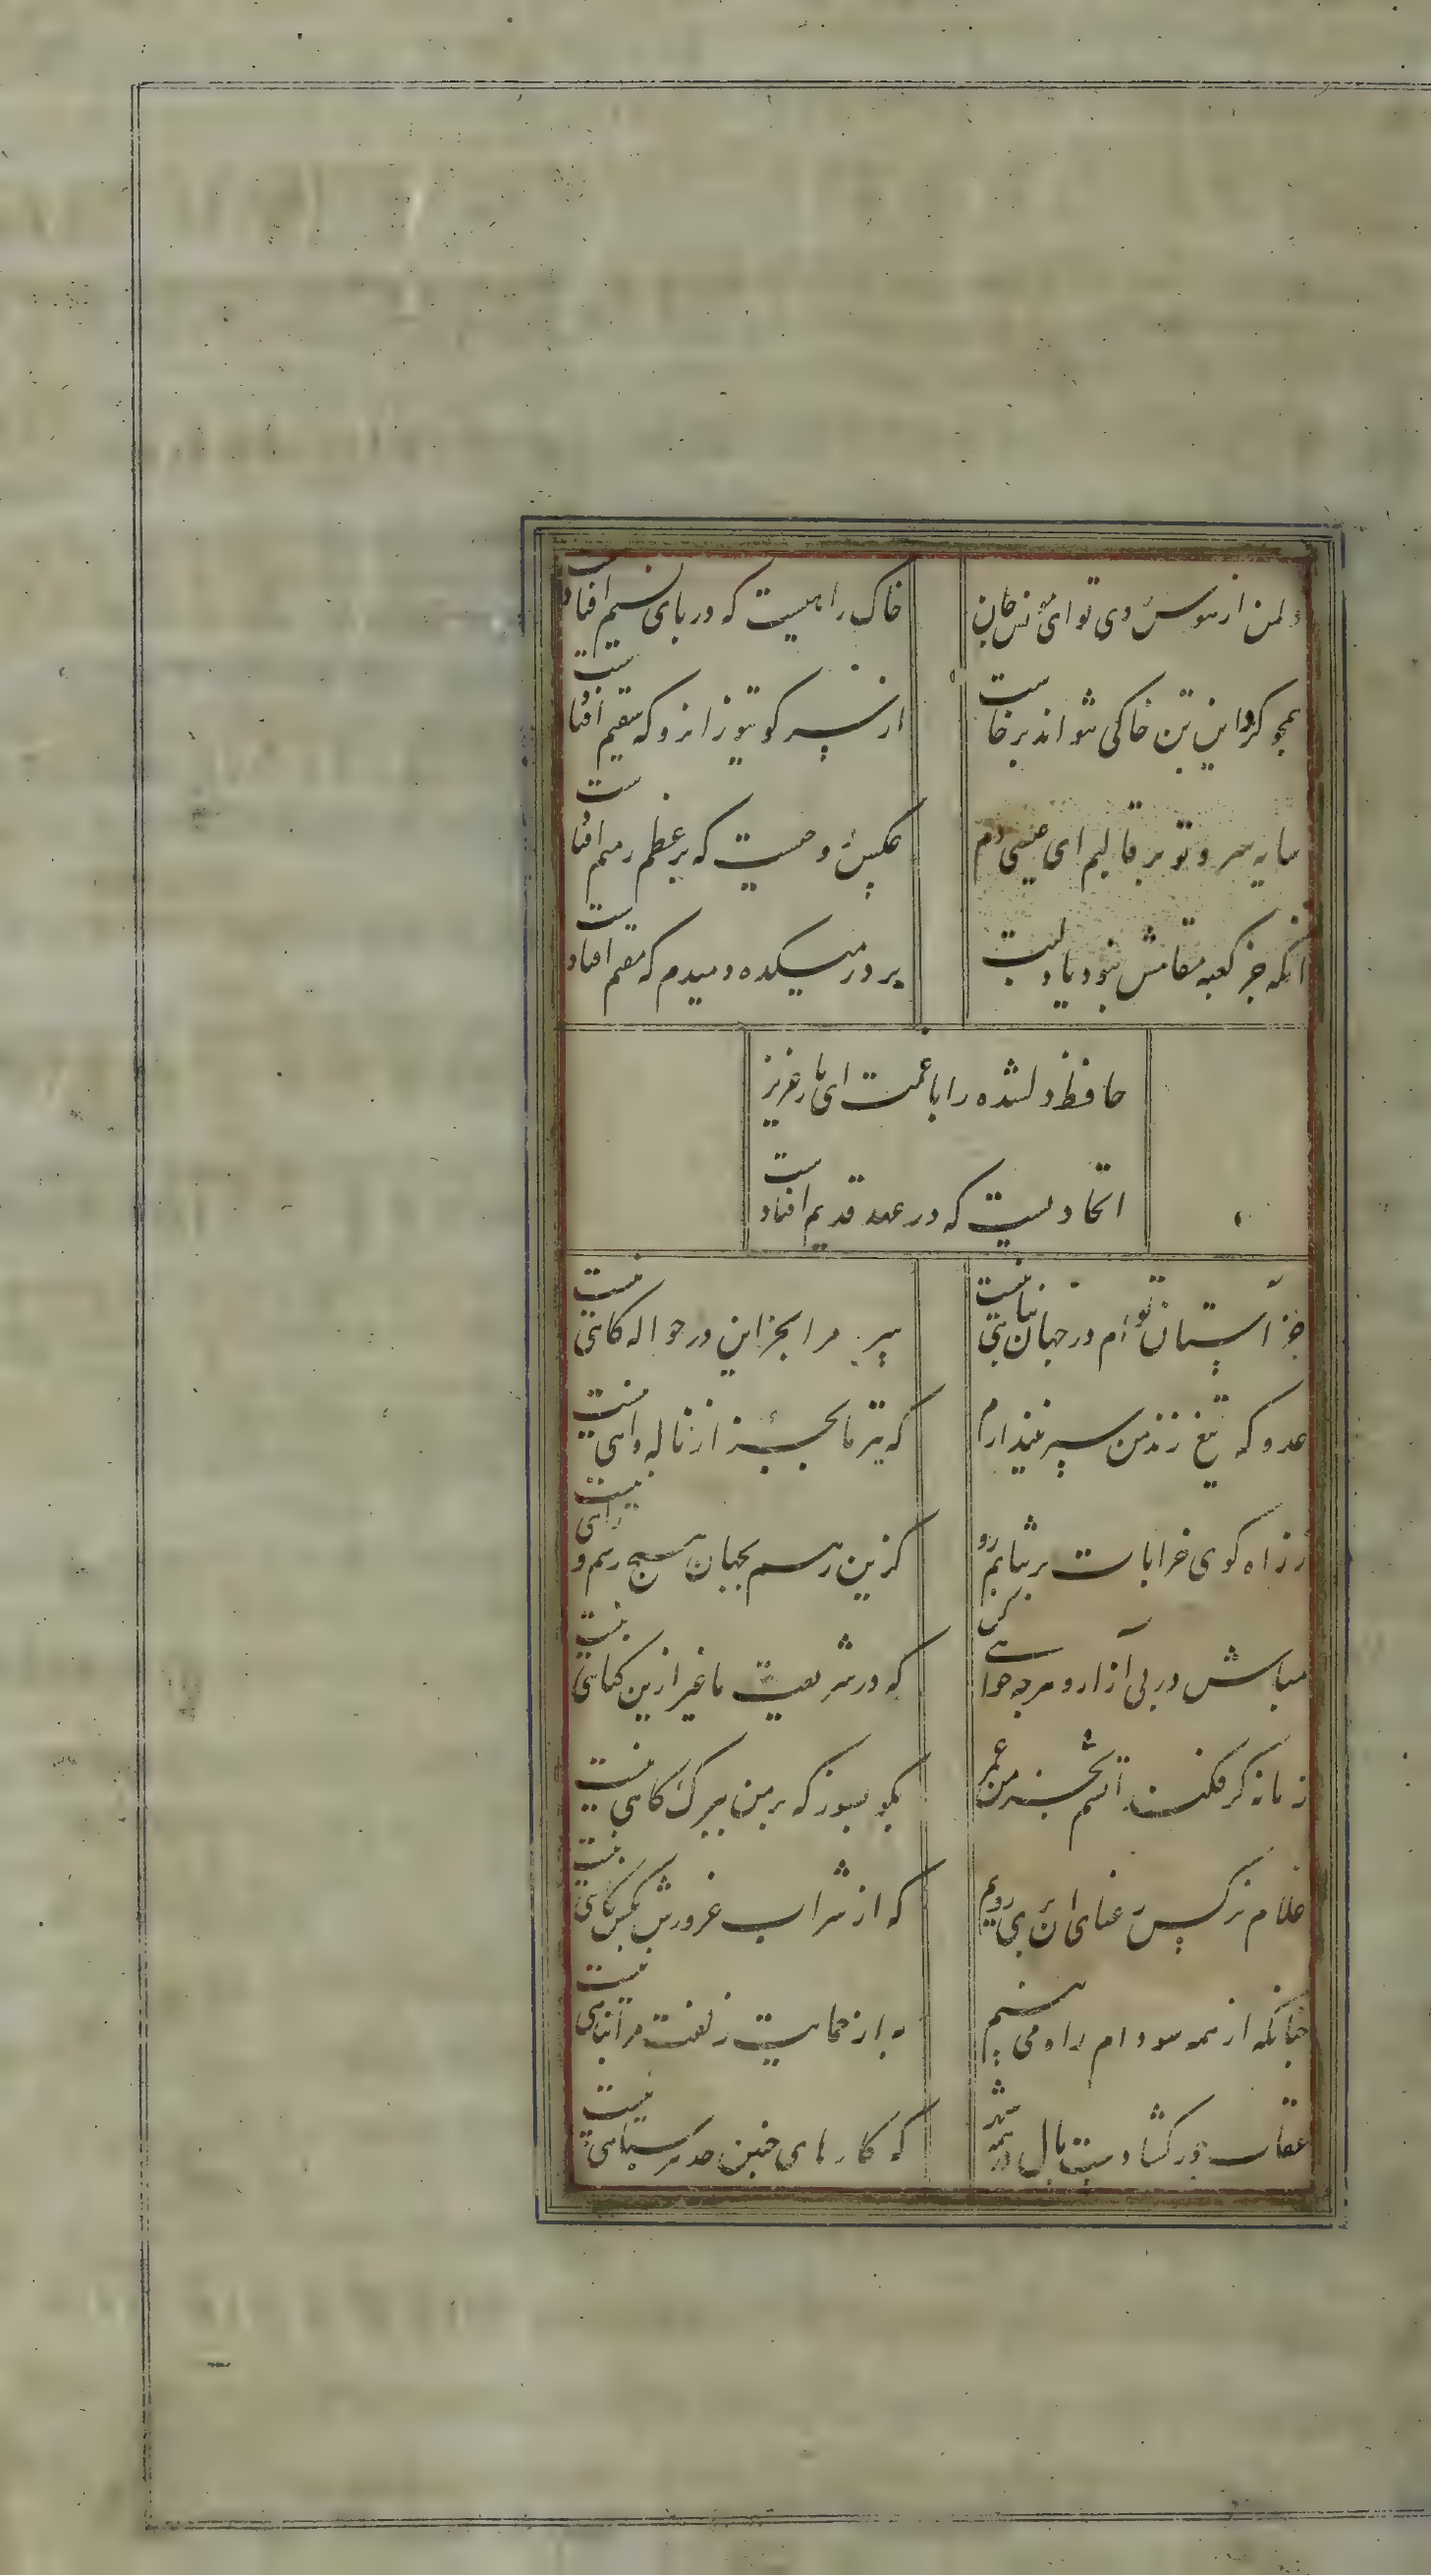 دلمن از هوس روی تو ای مونس جان
خاک راهیست که در پای نسیم افتادست
همچو گرد این تن خاکی نتواند برخاست
از سر کوی تو زانرو که سقیم افتادست
سایه سرو تو بر قالبم ای عیسی دم
عکس روحیست که بر عظم رمیم افتادست
آنکه جز کعبه مقامش نبود یاد لبت
بر در میکده دیدم که مقیم افتادست
حافظ دلشده را با غمت ای یار عزیز
اتحادیست که در عهد قدیم افتادست
جز آستان توام در جهان پناهی نیست
سر مرا بجز این در حواله گاهی نیست
عدو که تیغ زند من سپر بیندازم
که تیر ما بجز از ناله و آهی نیست
ز راه کوی خرابات بر نتابم رو
کزین رهم بجهان هیچ رسم و راهی نیست
مباش در پی آزار و هرچه خواهی کن
که در شریعت ما غیر ازین گناهی نیست
زمانه گر فکند آتشم بخرمن عمر
بگو بسوز که بر من ببرگ کاهی نیست
غلام نرگس رعنای آن سهی رویم
که از شراب غرورش بکس نگاهی نیست
چنانکه از همه سو دام راه می‌بینم
به از حمایت زلفت مرا پناهی نیست
عقاب جور گشادست بال در همه شهر
که کارهای چنین حد هر سیاهی نیست